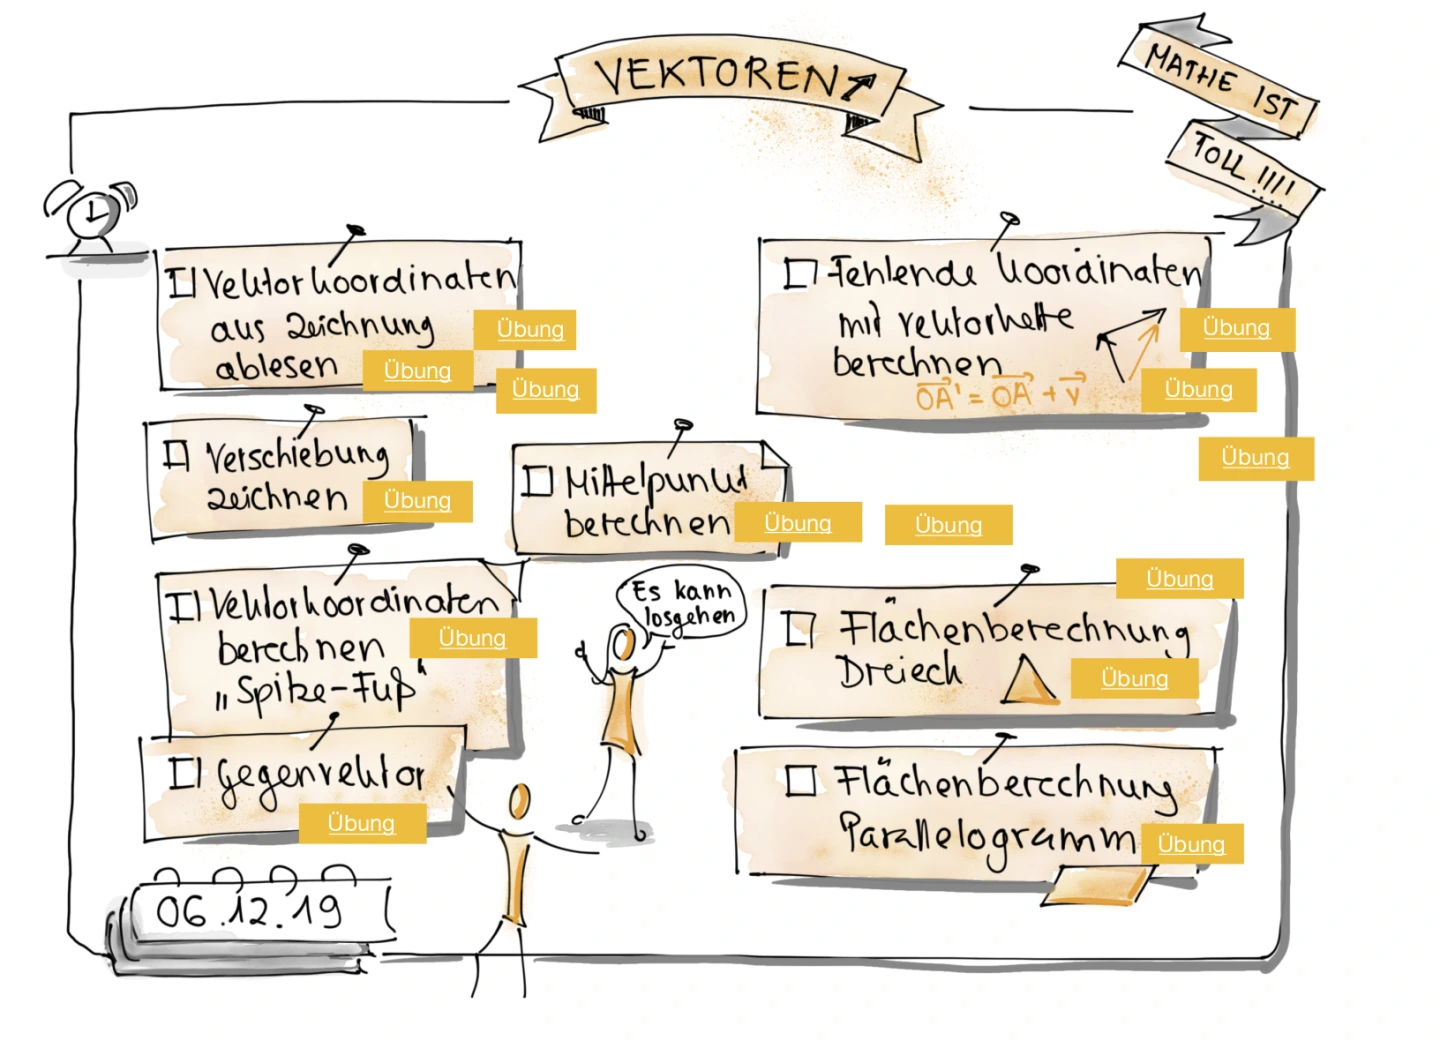 VEKTOREN
MATHE IST
TOLL!!!!
Vektorkoordinaten
aus Zeichnung
Übung
ablesen
Übung
Übung
Verschiebung
zeichnen
Übung
Vektorkoordinaten
berechnen
Übung
„Spitze-Fuß“
Gegenvektor
Übung
06.12.19
Mittelpunkt
berechnen
Übung
Übung
Es kann
losgehen
Fehlende Koordinaten
mit Vektorkette
Übung
berechnen
OA' = OA + v
Übung
Übung
Übung
Flächenberechnung
Dreieck
Übung
Flächenberechnung
Parallelogramm
Übung